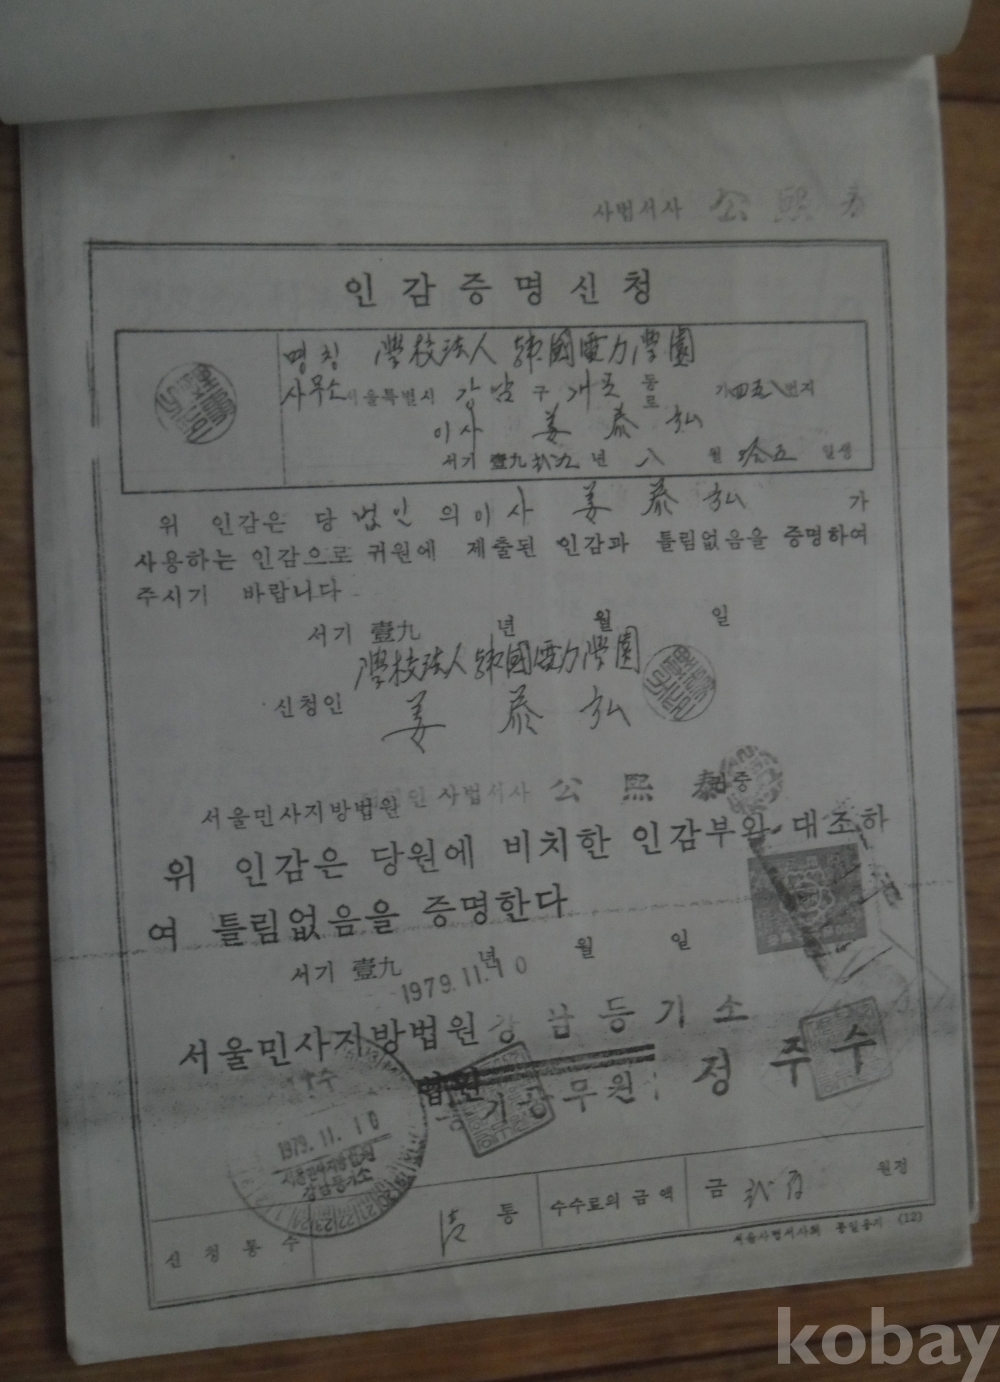 사법서사 公熙泰
인감증명신청
명칭 學校法人 韓國電力學園
사무소 서울특별시 강남구 개포동 번지
이사 姜泰弘
서기 壹九 年 八 월 五 일생
위 인감은 당 법인의 이사 姜泰弘 가
사용하는 인감으로 귀원에 제출된 인감과 틀림없음을 증명하여
주시기 바랍니다
서기 壹九 년 월 일
學校法人 韓國電力學園
신청인 姜泰弘
서울민사지방법원 사법서사 公熙泰
위 인감은 당원에 비치한 인감부와 대조하
여 틀림없음을 증명한다
서기 壹九 년 월 일
1979.11.10
서울민사지방법원 강남등기소
법원 공무원 정주수
1979.11.10
서울민사지방법원
강남등기소
신청통수 통 수수료의 금액 금 원정
서울사법서사회 통일용지 (12)
kobay